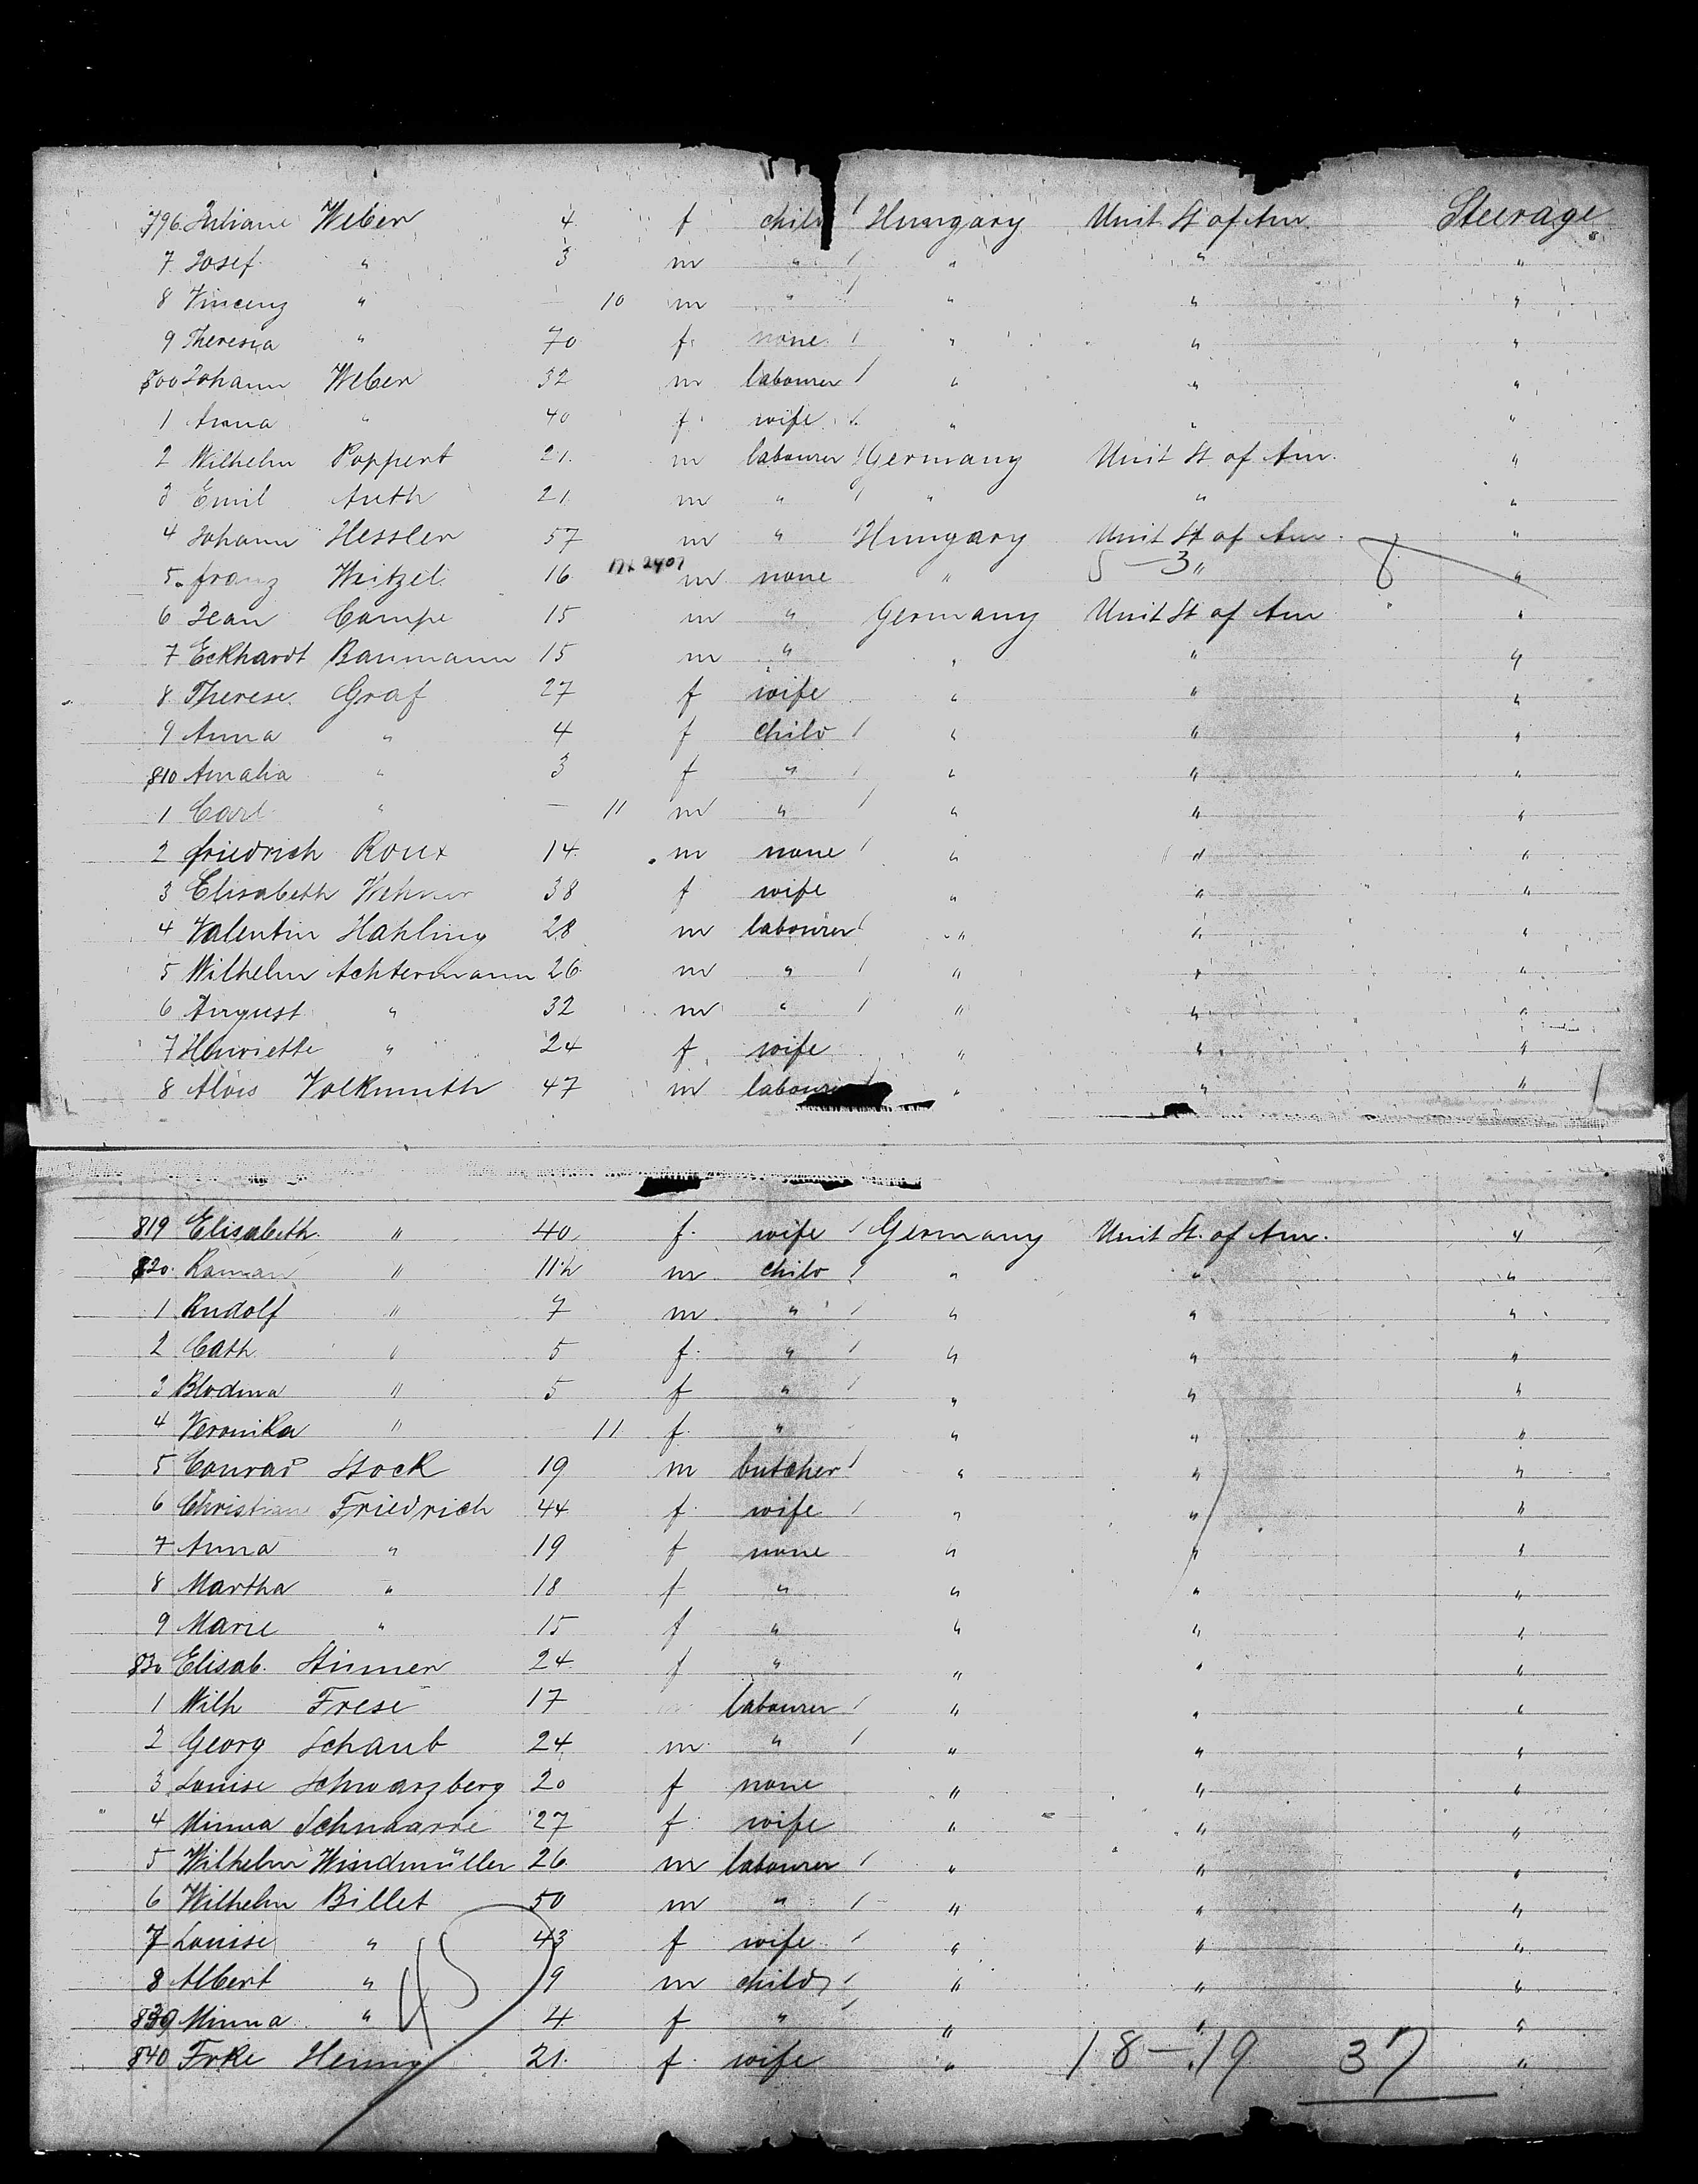 796 Juliane Weber 4 f child / Hungary Unit St of Am. Steerage
7 Josef " 3 m " / " " "
8 Vincenz " — 10 m " / " " "
9 Theresia " 70 f. none / " " "
800 Johann Weber 32 m labourer / " " "
1 Anna " 40 f. wife / " " "
2 Wilhelm Poppert 21. m labourer / Germany Unit St of Am. "
3 Emil Auth 21 m " / " " "
4 Johann Hessler 57 m " Hungary Unit St of Am. "
5. Franz Weitzel 16 m none " " "
5 — 3 8
6 Jean Campe 15 m " Germany Unit St of Am "
7 Eckhardt Baumann 15 m " " " "
8. Therese Graf 27 f wife " " "
9 Anna " 4 f child / " " "
810 Amalia " 3 f " / " " "
1 Carl " — 11 m " / " " "
2 Friedrich Roux 14. m none / " " "
3 Elisabeth 38 f wife " " "
4 Valentin Hahling 28 m labourer / " " "
5 Wilhelm Achtermann 26 m " / " " "
6 August " 32 m " / " " "
7 Henriette " 24 f. wife " " "
8 Alois Volkmuth 47 m labourer " " "
819 Elisabeth " 40 f. wife / Germany Unit St. of Am. "
820. Roman " m child / " " "
1 Rudolf " 7 m " / " " "
2 Cath. " 5 f. " / " " "
3 " 5 f " / " " "
4 Veronika " 11 f. " " " "
5 Conrad Stock 19 m butcher / " " "
6 Christian Friedrich 44 f. wife / " " "
7 Anna " 19 f none " " "
8 Martha " 18 f " " " "
9 Marie " 15 f " " " "
830 Elisab. 24 f " " " "
1 Wilh Frese 17 labourer / " " "
2 Georg Schaub 24 m. " / " " "
3 Louise Schwarzberg 20 f none " " "
4 Minna 27 f. wife " " "
5 Wilhelm Windmüller 26 m labourer / " " "
6 Wilhelm Billet 50 m " / " " "
7 Louise " 43 f wife / " " "
8 Albert " 9 m child / " " "
839 Minna " 4 f " / " " "
45
840 Frke Henny 21. f. wife " "
18 — 19 37